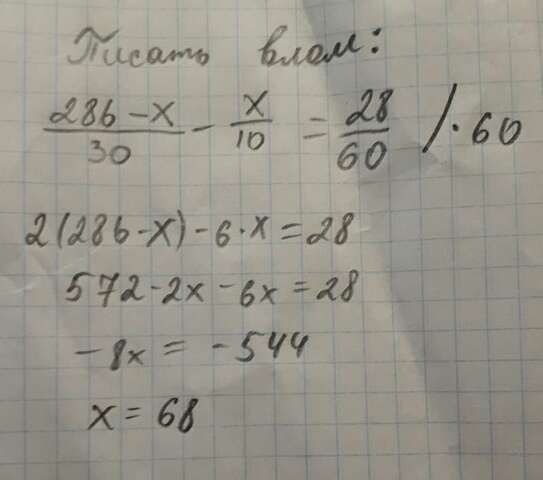 Писать влом:
(286-x)/30 - x/10 = 28/60 /·60
2(286-x)-6·x=28
572-2x-6x=28
-8x=-544
x=68